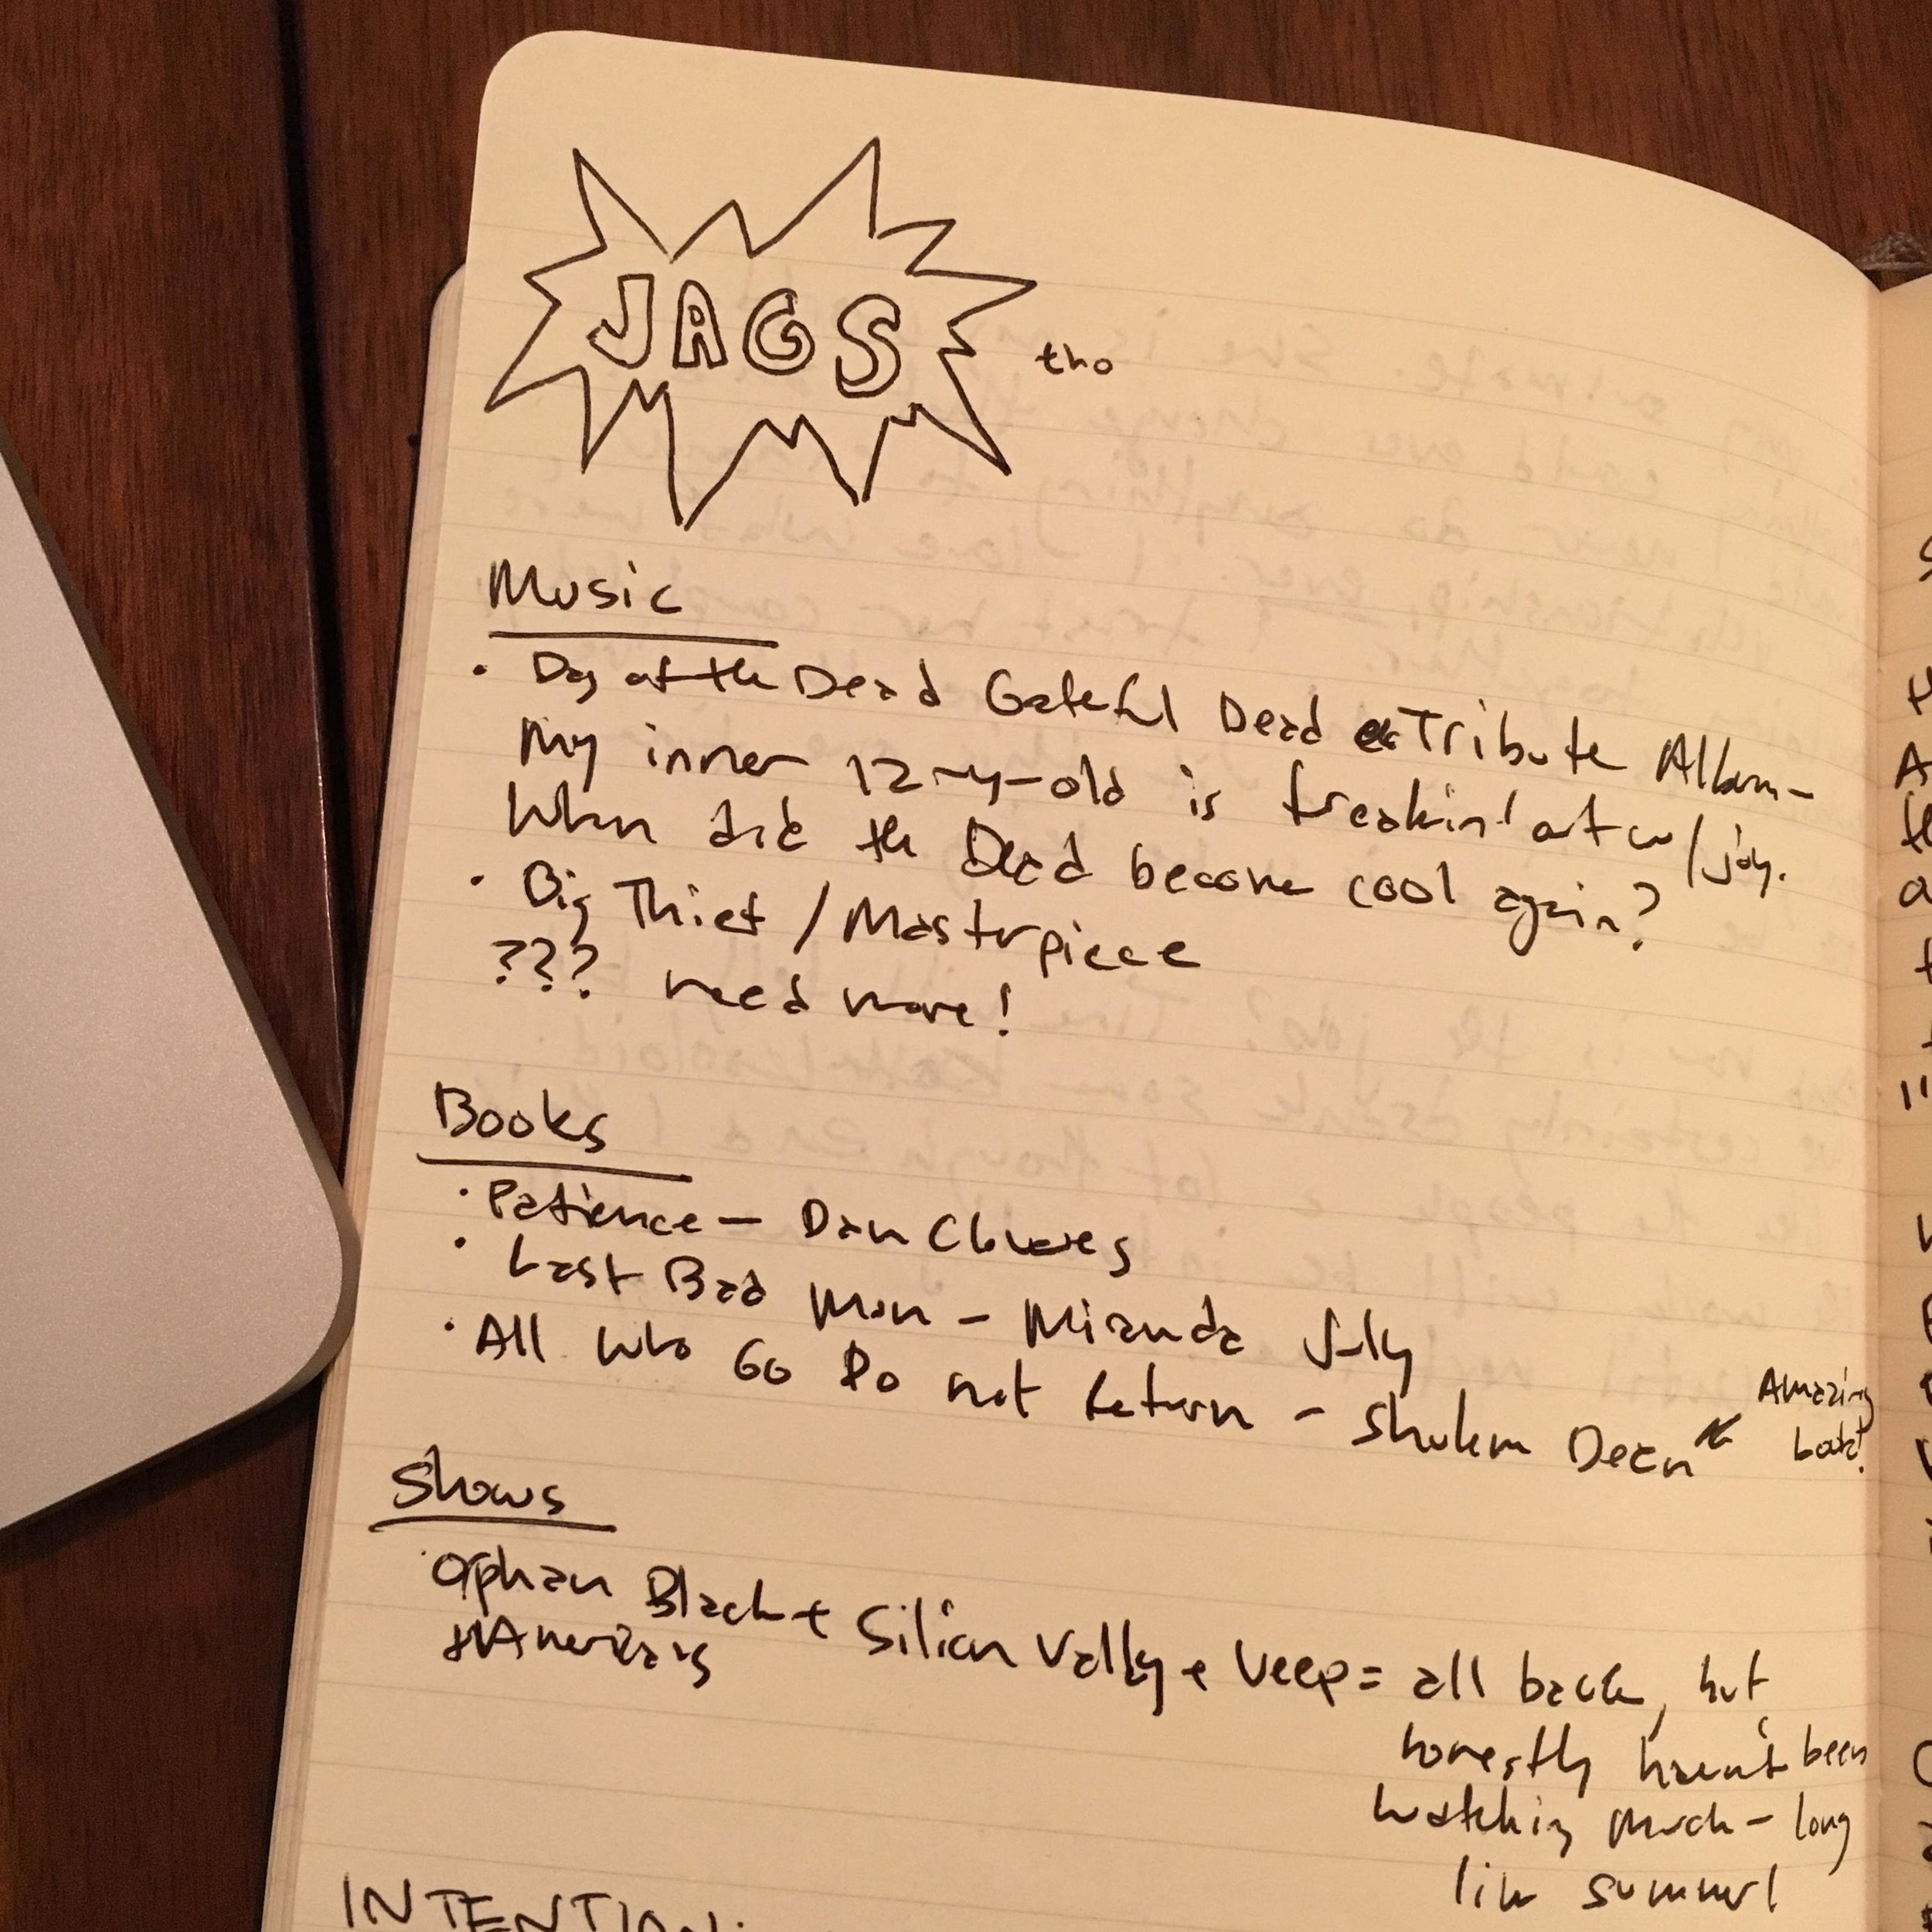 JAGS tho
Music
• Day of the Dead Grateful Dead Tribute Album -
My inner 12-y-old is freakin' out w/joy.
When did the Dead become cool again?
• Big Thief / Masterpiece
??? need more!
Books
• Patience - Dan Clowes
• Last Bad Man - Miranda July
• All Who Go Do not Return - Shulem Deen
Amazing
book!
Shows
• Orphan Black + Silicon Valley + Veep = all back, but
+ Americans
honestly haven't been
watching much - long
live summer!
INTENTION: